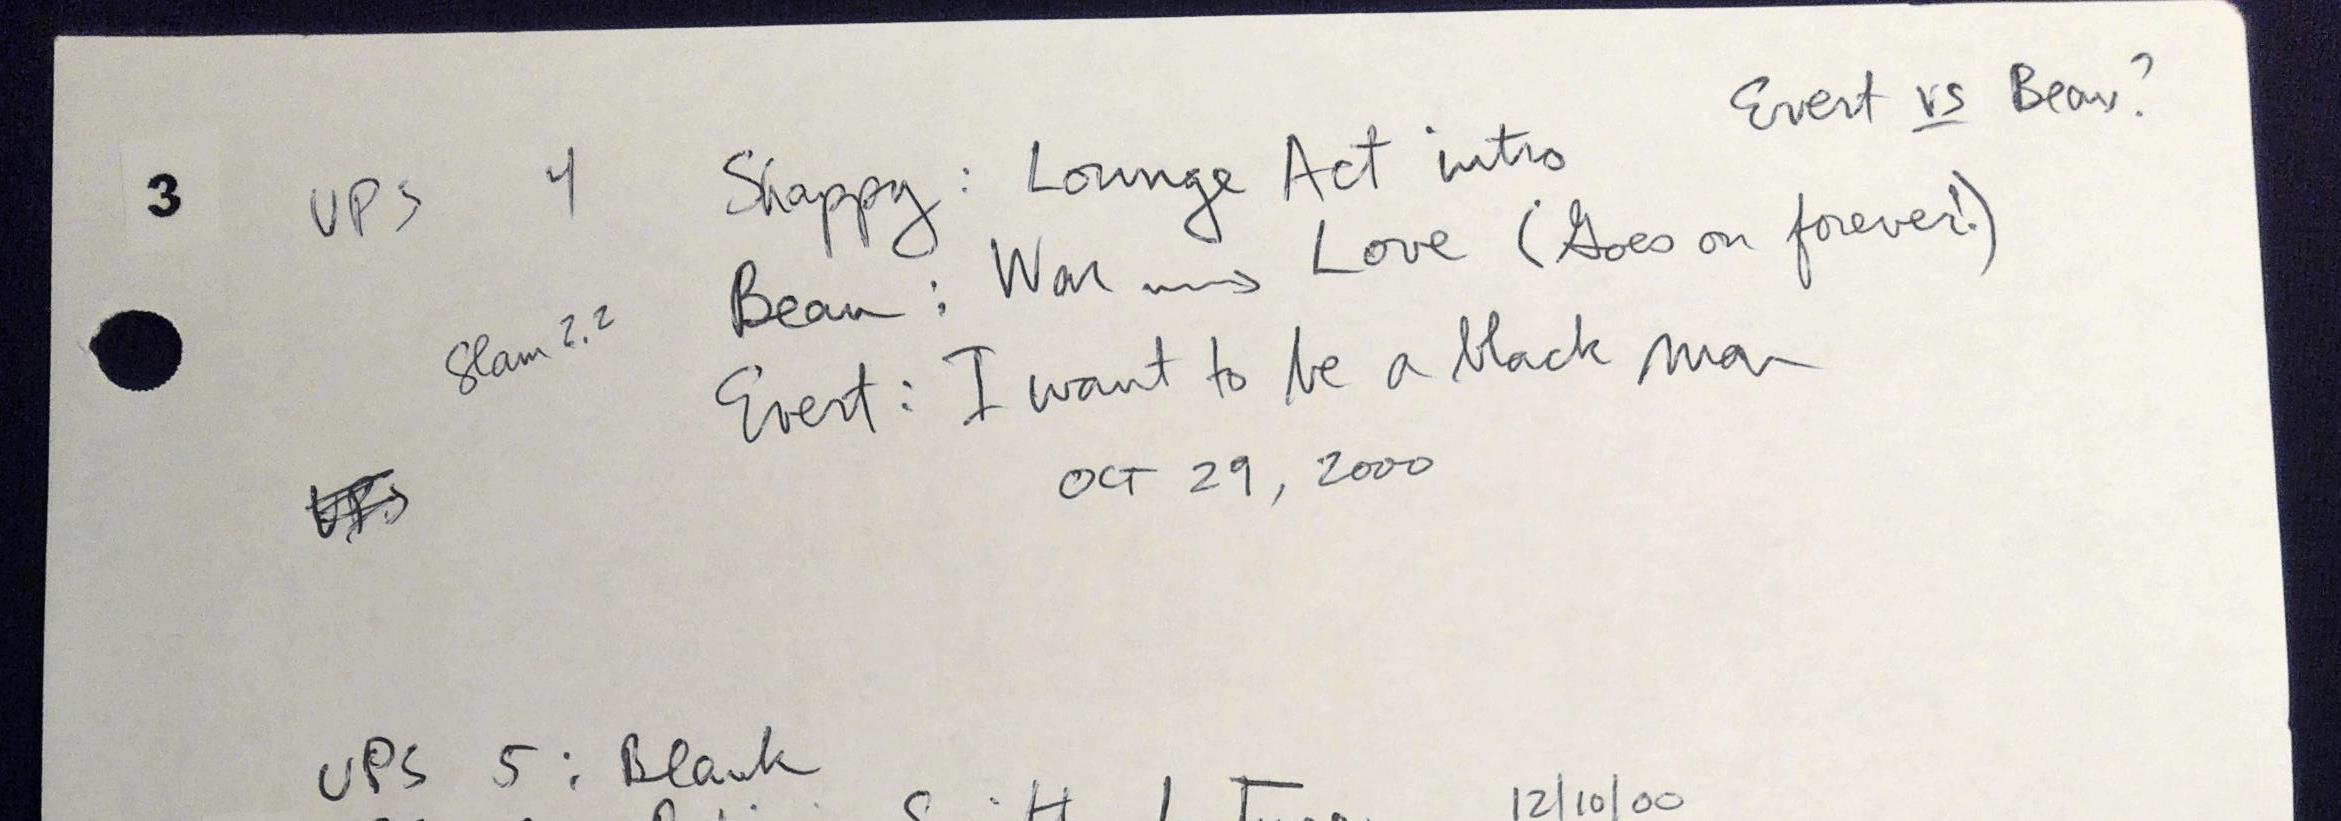 Evert vs Beau?
3 UPS 4 Shappy: Lounge Act intro
Beau: War → Love (Goes on forever!)
Slam 2.2
Evert: I want to be a black man
OCT 29, 2000
UPS
UPS 5: Blank
12/10/00